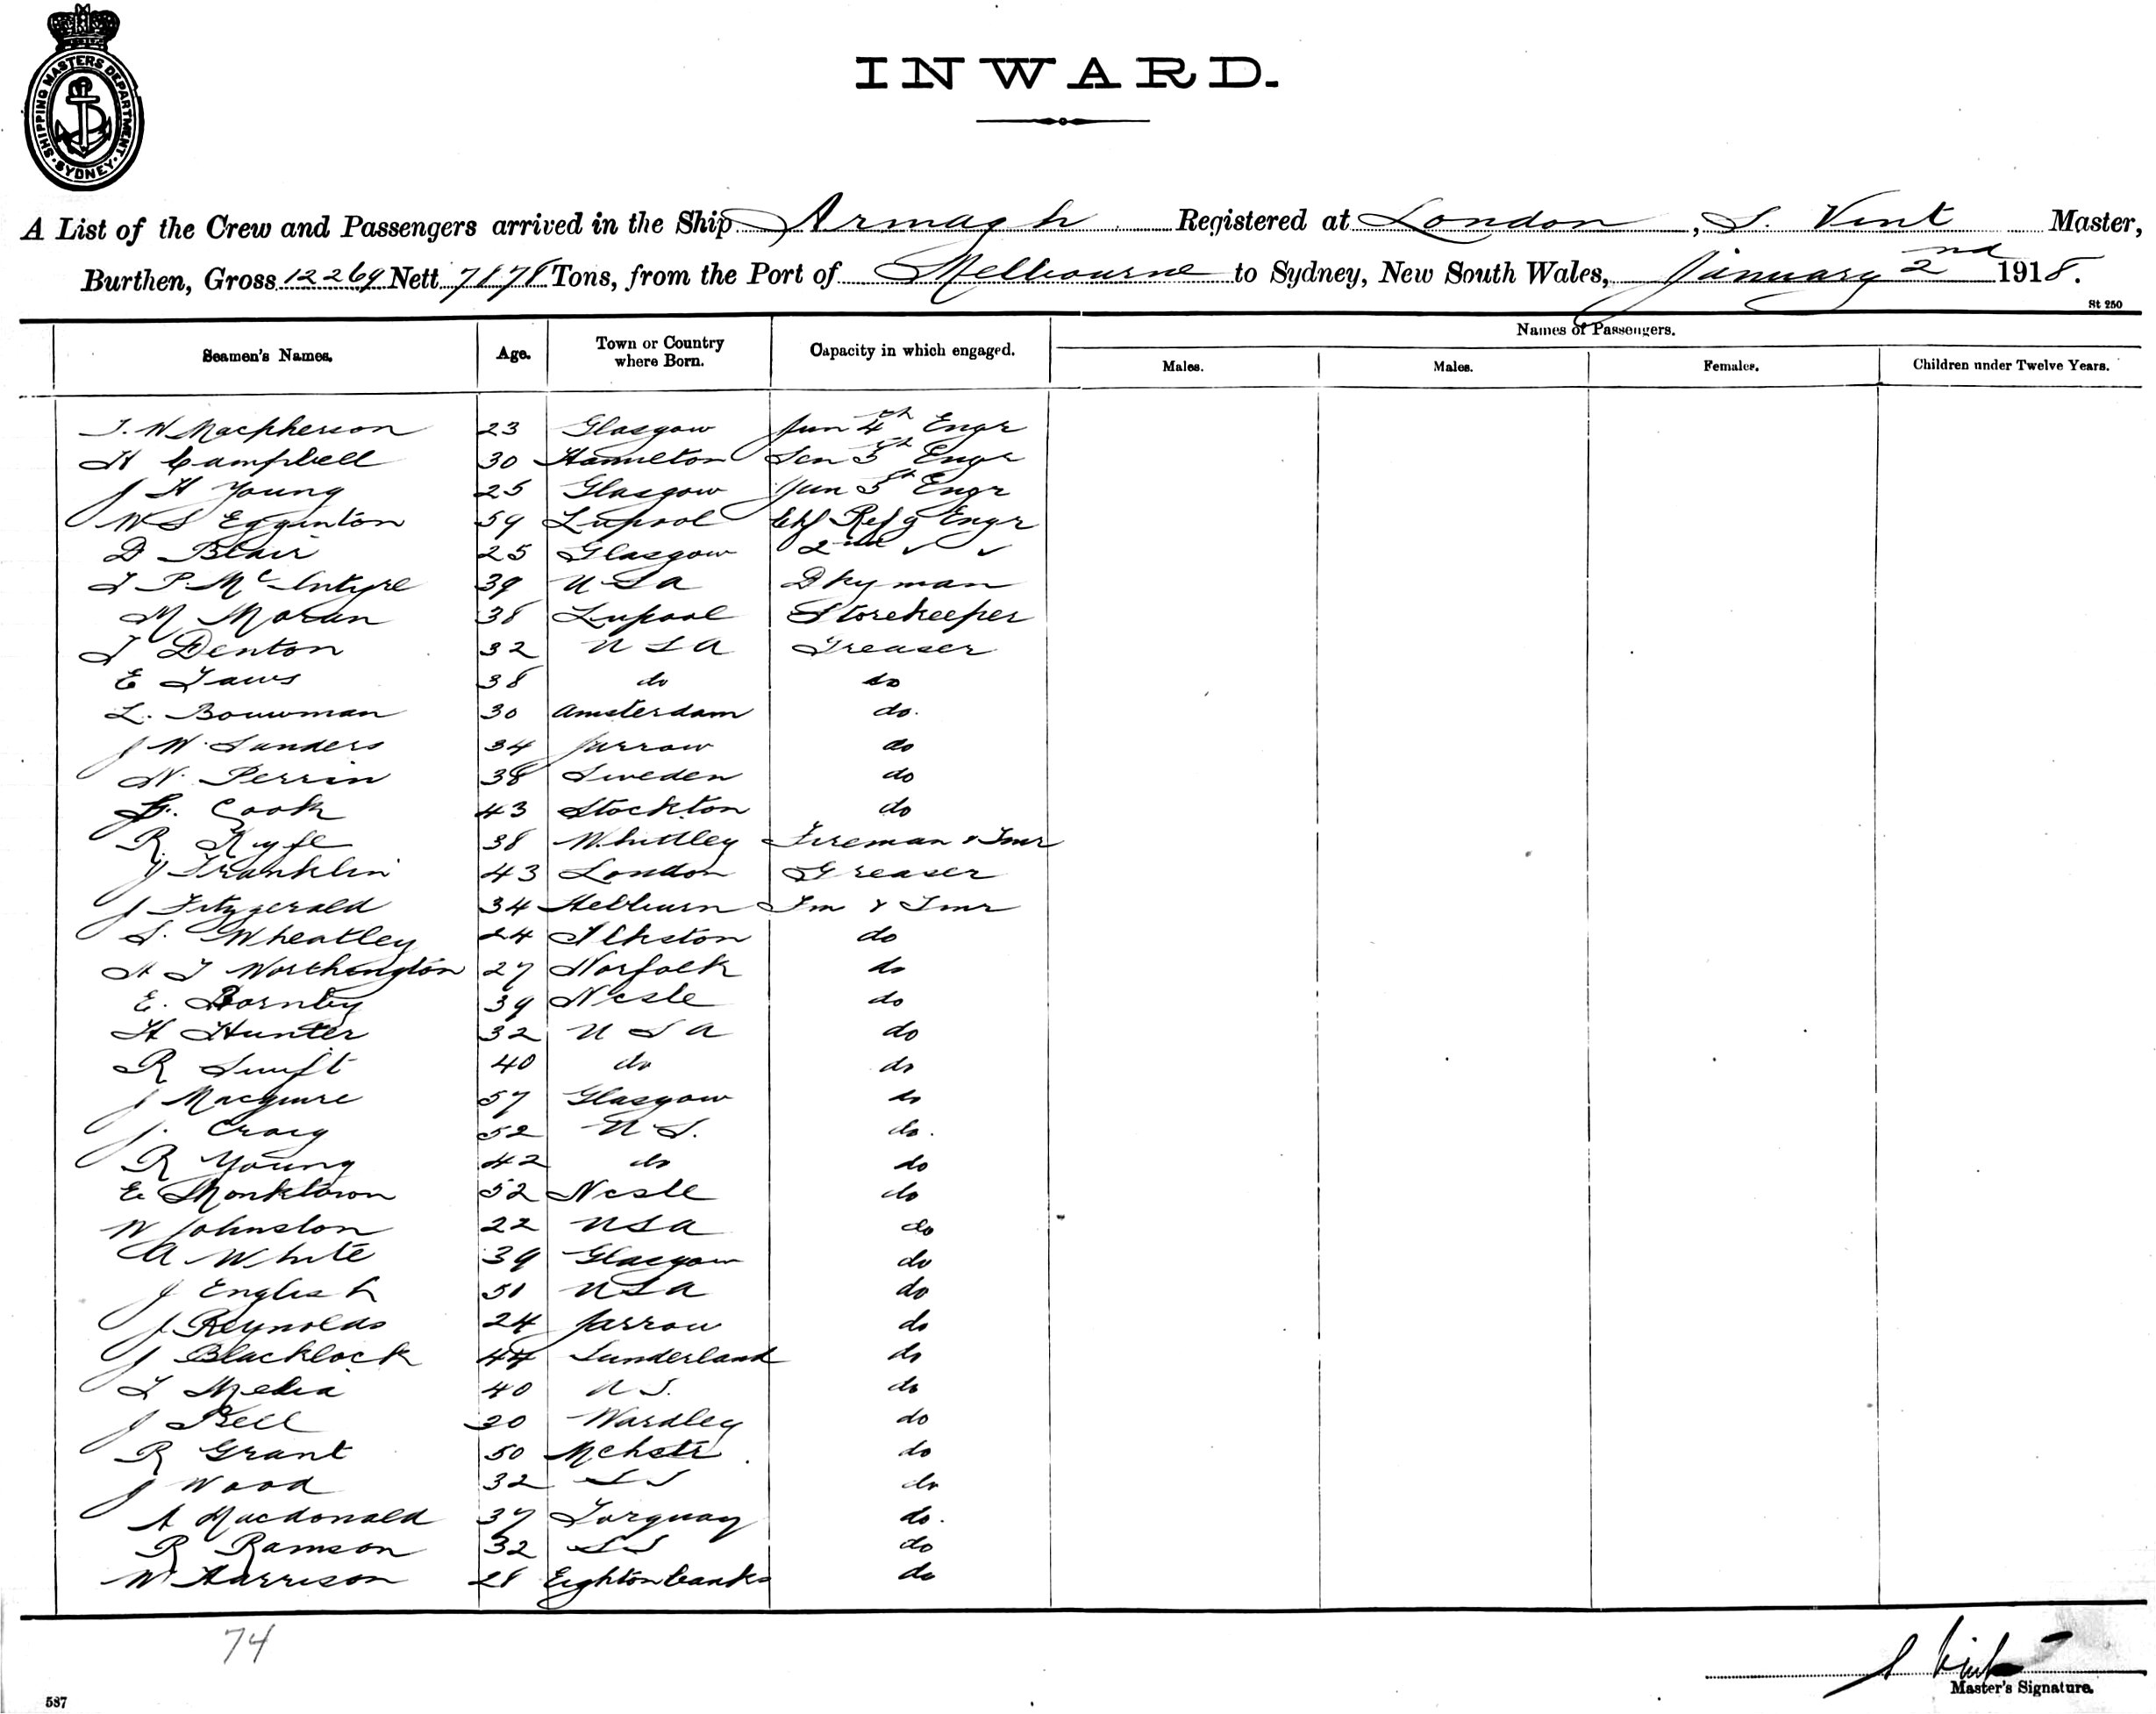 SHIPPING MASTERS DEPARTMENT · SYDNEY ·
INWARD.
A List of the Crew and Passengers arrived in the Ship Armagh Registered at London, S. Vint Master,
Burthen, Gross 12269 Nett 7878 Tons, from the Port of Melbourne to Sydney, New South Wales, January 2nd 1918.
St 250
Names of Passengers.
Seamen's Names. Age. Town or Country where Born. Capacity in which engaged. Males. Males. Females. Children under Twelve Years.
J. W Macpherson 23 Glasgow Jun 4th Engr
H Campbell 30 Hamilton Sen 5th Engr
J H Young 25 Glasgow Jun 5th Engr
W S Egginton 59 Lupool Chf Refg Engr
D Blair 25 Glasgow 2nd ✓ ✓
T P. McIntyre 39 USA Dkyman
M Moran 38 Lupool Storekeeper
T Denton 32 USA Greaser
E Jaws 38 do do
L. Bouwman 30 Amsterdam do.
J W. Sanders 34 Jarrow do
N. Perrin 38 Sweden do
Cook 43 Stockton do
R. Kyfe 38 Whittley Fireman & Tmr
J Franklin 43 London Greaser
J Fitzgerald 34 Hebburn Fm & Tmr
S. Wheatley 24 Ilkston do
A J Worthington 27 Norfolk do
E. Bornby 39 Ncsle do
H Hunter 32 USA do
R Swift 40 do do
J Macguire 57 Glasgow do
J. Craig 52 N S. do.
R Young 42 do do
E Monktown 52 Ncsle do
W Johnston 22 USA do
A White 39 Glasgow do
J English 51 USA do
J Reynolds 24 Jarrow do
J Blacklock 44 Sunderland do
T Melia 40 N S. do
J Bell 30 Wardley do
R Grant 50 Mchstr. do
J Wood 32 S S do
A Macdonald 37 Torquay do.
R Ramson 32 S S do
W Harrison 28 Eighton banks do
74
S Vint
Master's Signature.
587